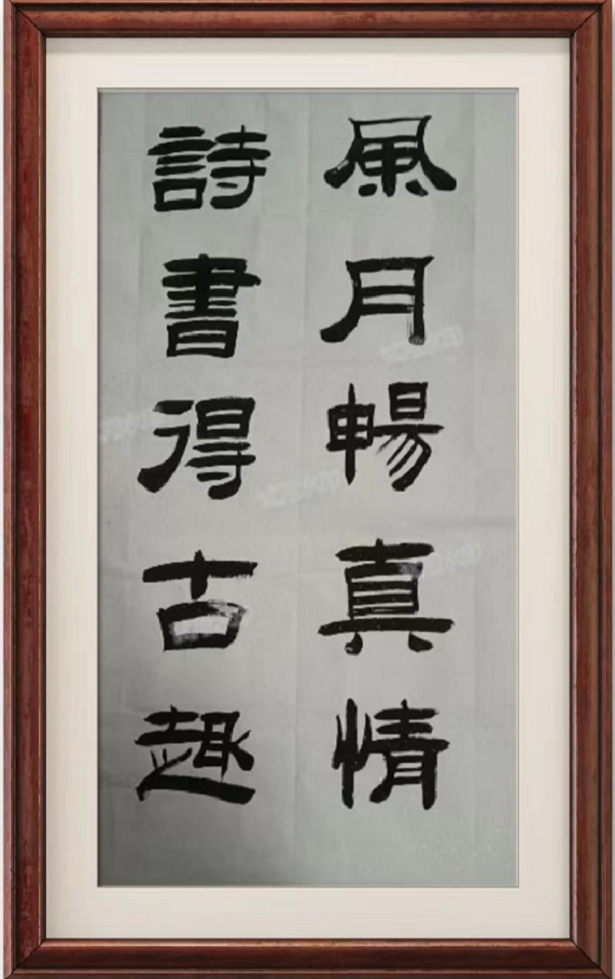 風月暢真情
詩書得古趣